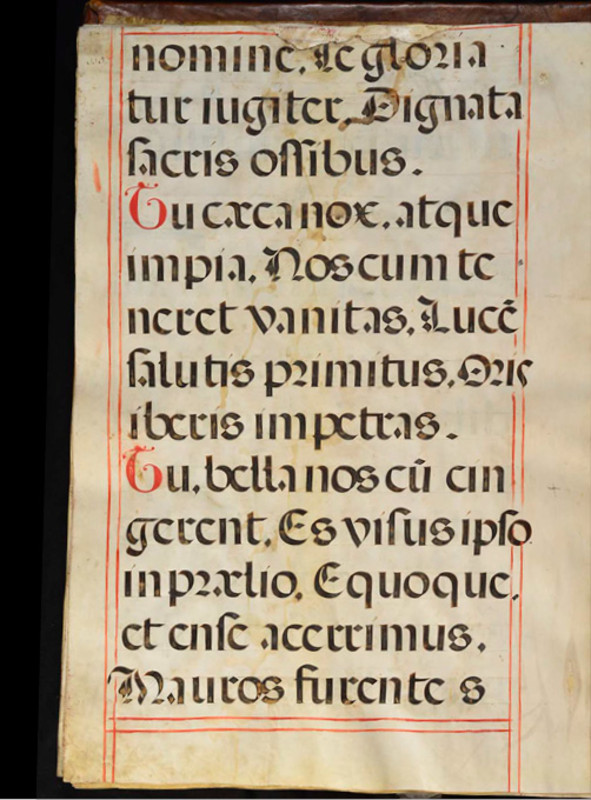 nomine. Te gloria
tur iugiter, Dignata
sacris ossibus.
Tu cæca nox, atque
impia, Nos cum te
neret vanitas, Lucẽ
salutis primitus, Oris
iberis impetras.
Tu, bella nos cũ cin
gerent, Es visus ipso
in prælio, Equoque,
et ense acerrimus,
Mauros furente s